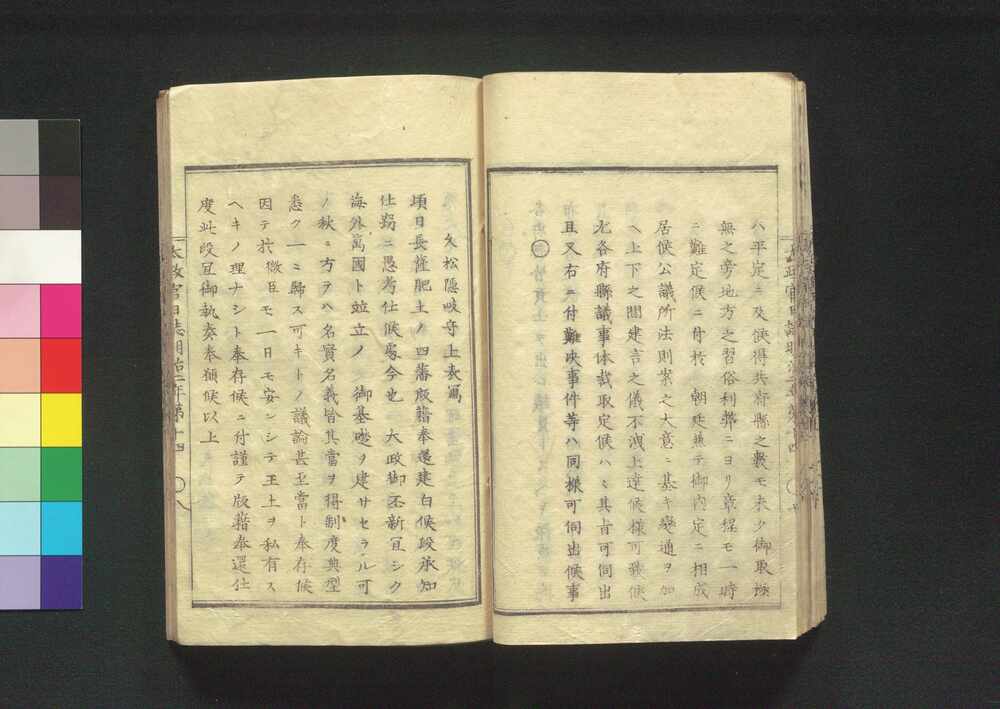 ハ平定ニ及候得共府縣之數モ未タ御取極
無之旁地方之習俗利弊ニヨリ章程モ一時
ニ難定候ニ付於 朝廷兼テ御内定ニ相成
居候公議所法則案之大意ニ基キ變通ヲ加
ヘ上下之間建言之儀不洩上達候様可致候
尤各府縣議事体裁取定候ハヽ其旨可伺出
且又右ニ付難決事件等ハ同様可伺出候事
久松隱岐守上表寫
頃日長薩肥土ノ四藩版籍奉還建白候段承知
仕竊ニ愚考仕候處今也 大政御丕新冝シク
海外萬國ト竝立ノ 御基礎ヲ建サセラル可
ノ秋ニ方テハ名實名義皆其當ヲ得制度典型
悉ク一ニ歸ス可キトノ議論甚至當ト奉存候
因テ於微臣モ一日モ安ンシテ王土ヲ私有ス
ヘキノ理ナシト奉存候ニ付謹テ版籍奉還仕
度此段冝御執奏奉願候以上
太政官日誌明治二年第十四
八